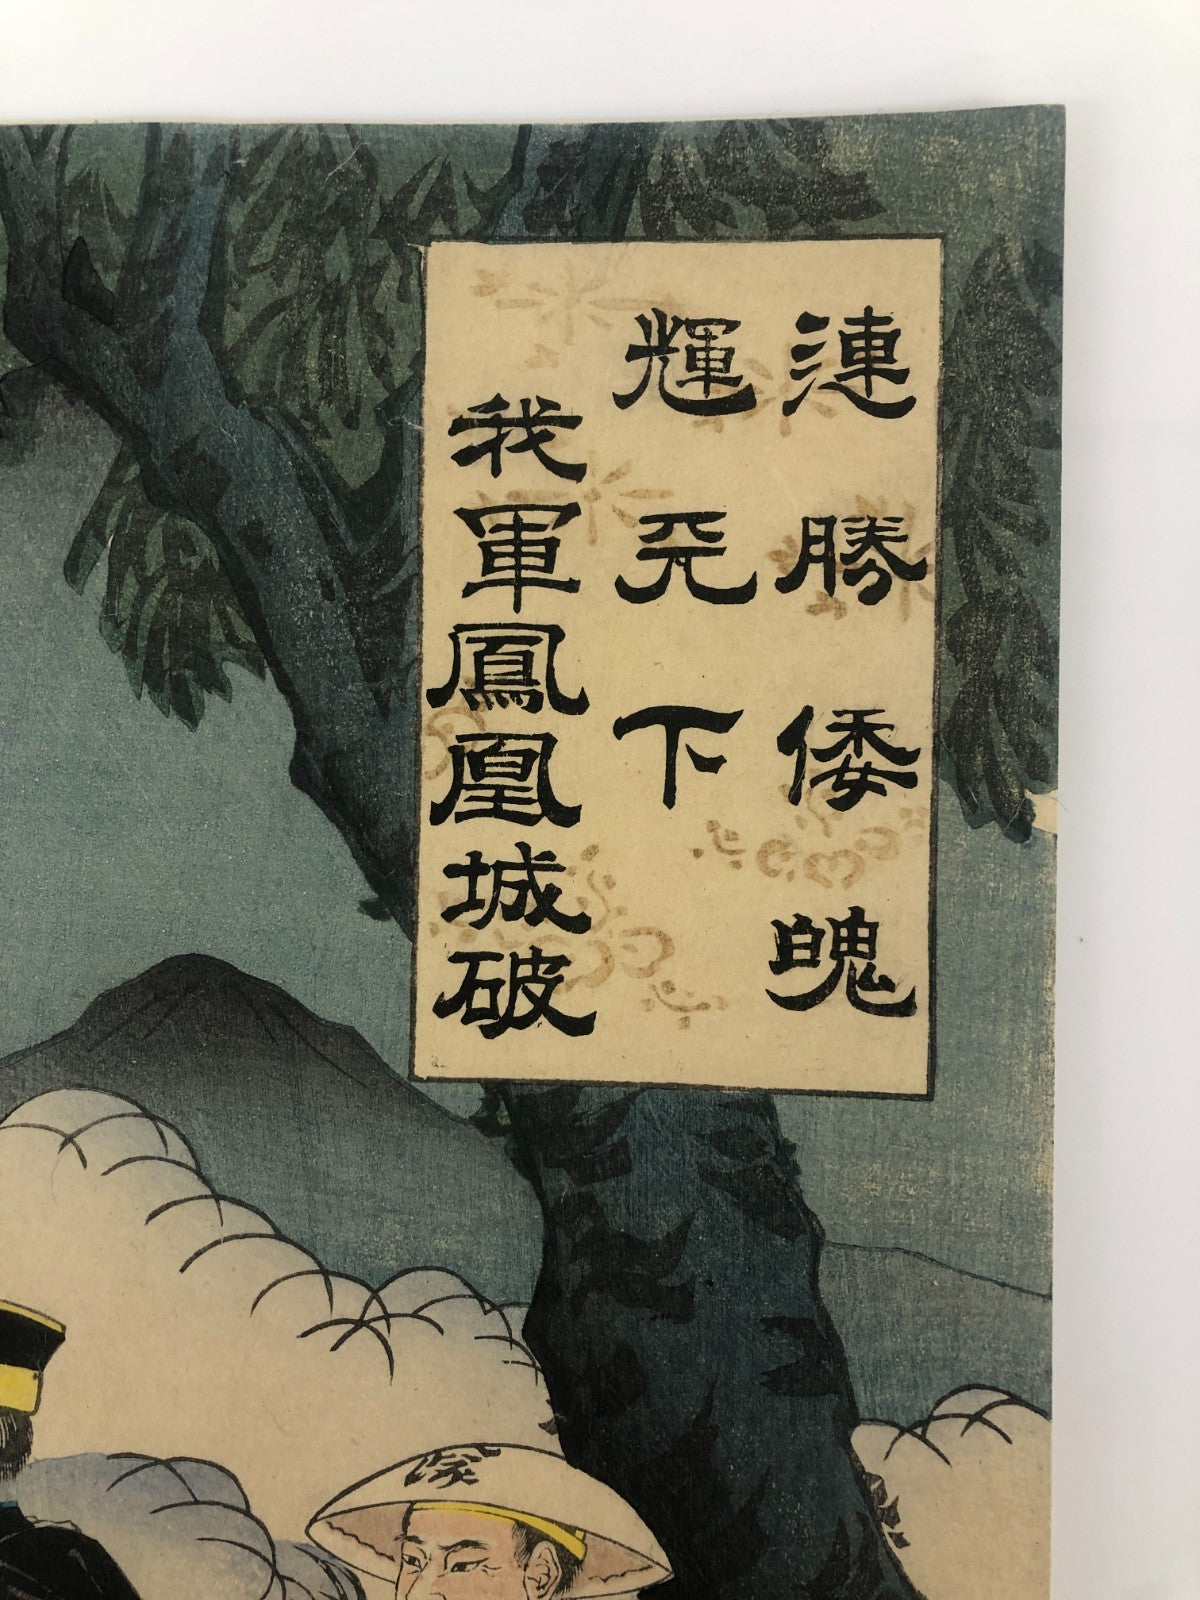 連勝倭魄
輝天下
我軍鳳凰城破